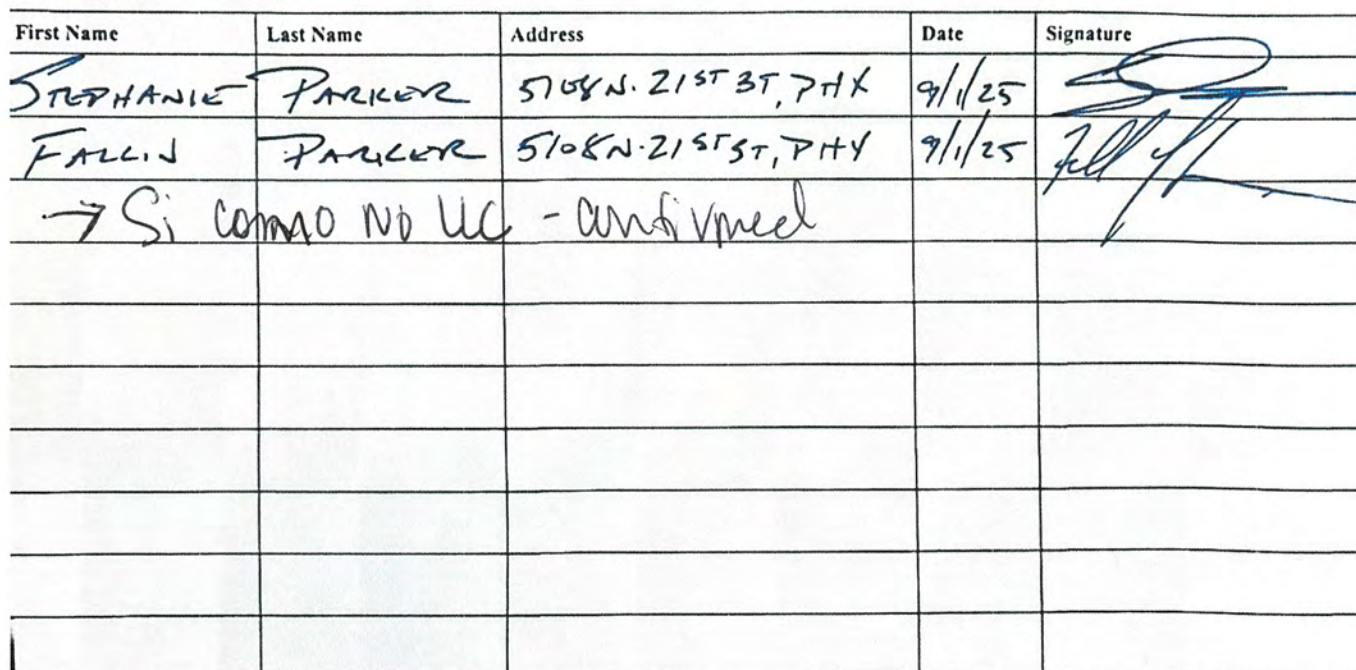 First Name Last Name Address Date Signature
STEPHANIE PARKER 5108 N. 21ST ST, PHX 9/1/25
FALLIN PARKER 5108 N. 21ST ST, PHX 9/1/25
→ Si como No LLC - confirmed